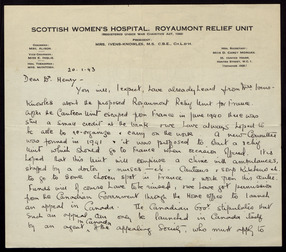 SCOTTISH WOMEN'S HOSPITAL, ROYAUMONT RELIEF UNIT
PRESIDENT:
MRS. IVENS-KNOWLES, M.S.
20.1.43
Dear Dr. Henry -
You will, I expect, have already heard from Mrs Ivens-
Knowles about the proposed Royaumont Relief Unit for France
After the Canteen Unit escaped from France in June 1940 there was
still a small credit at the bank & we have always hoped to
be able to re-organise & carry on the work. A new Committee
was formed in 1941 & it was proposed to start a relief
unit which should go to France when occasion offered. It is
hoped that this unit will comprise a clinic with ambulances,
staffed by a doctor & nurses - Canteens & soup kitchens etc
to go to some chosen spot in France & work from this centre.
Funds will of course have to be raised, & we have got permission
from the Canadian Government through the Home Office to launch
an appeal in Canada. The Canadian Govt stipulates that
such an appeal can only be launched in Canada itself
by an agent, & the appealing Society who must apply to